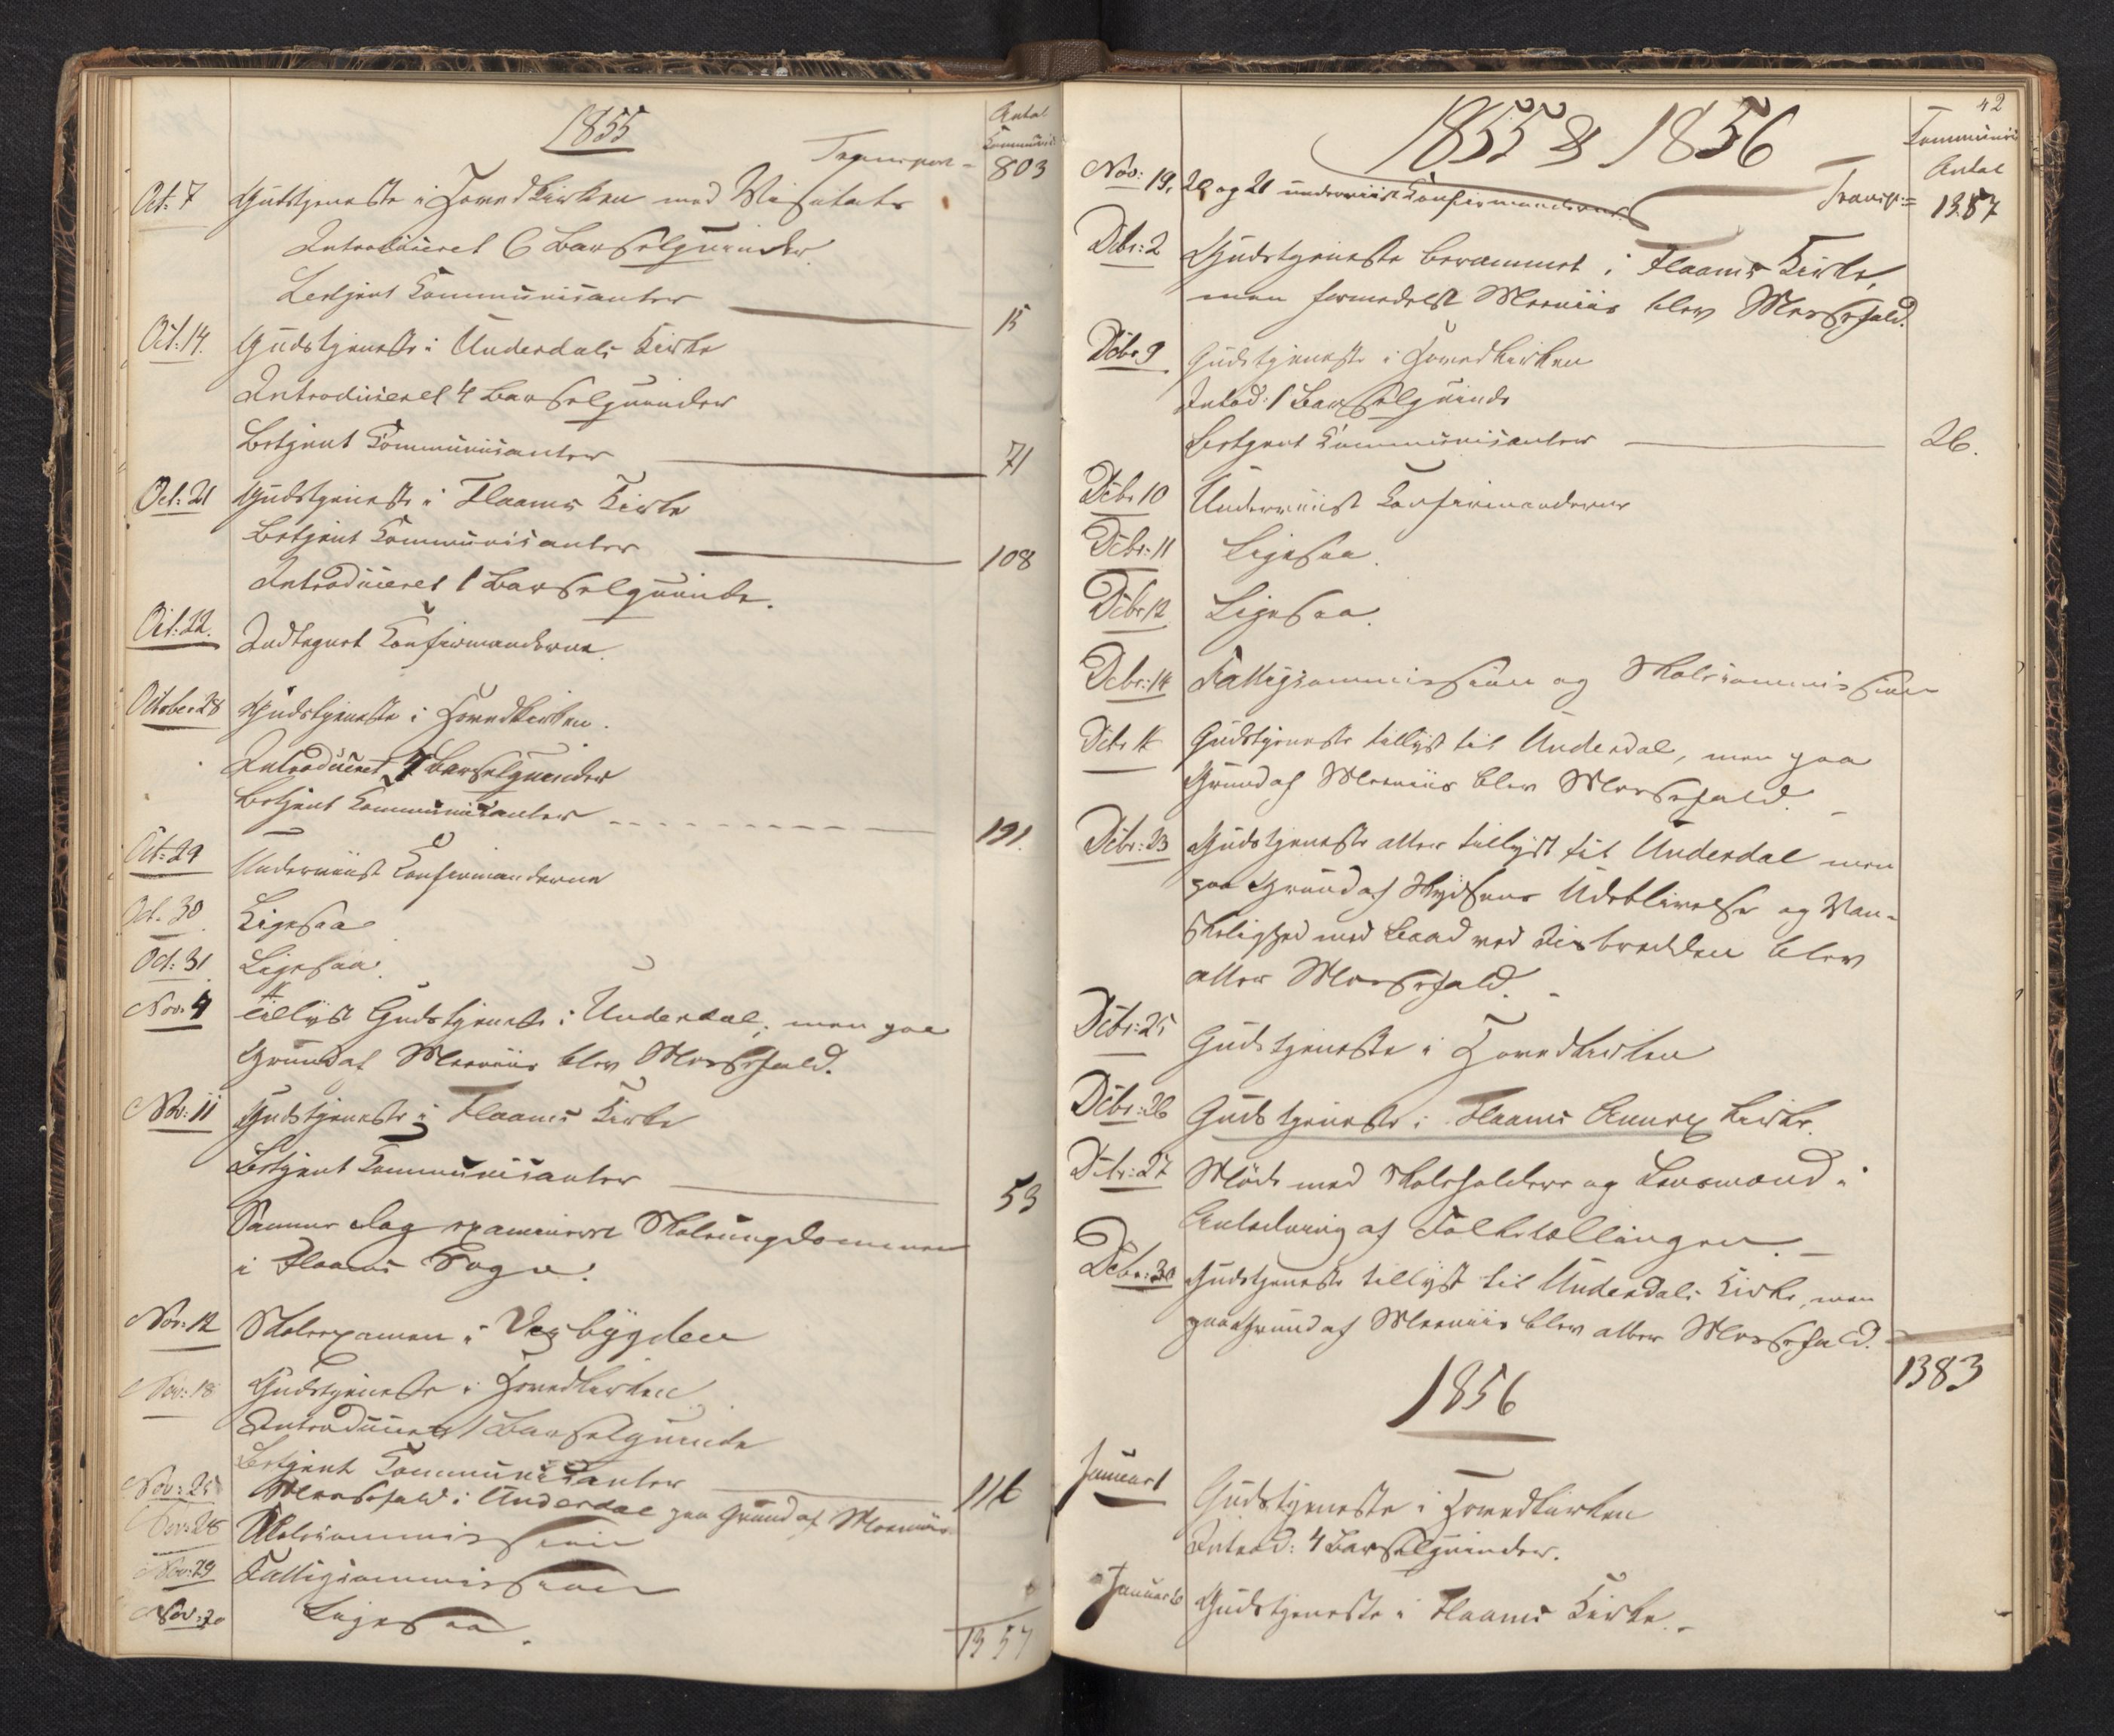 1855
Antal
Communic:
Transport = 803
Oct: 7 Gudstjeneste i Hovedkirken med Visitats
Introduceret 6 Barselquinder.
Betjent Communicanter 15
Oct: 14. Gudstjeneste i Underdals Kirke
Introduceret 4 Barselquinder
Betjent Communicanter 71
Oct: 21 Gudstjeneste i Flaams Kirke
Betjent Communicanter 108
Introduceret 1 Barselquinde.
Oct: 22. Indtegnet Confirmanderne.
October 28 Gudstjeneste i Hovedkirken.
Introduceret 4 Barselquinder
Betjent Communicanter 191.
Oct: 29 Underviist Confirmanderne
Oct. 30. Ligesaa
Oct: 31. Ligesaa.
Nov: 4 Tillyst Gudstjeneste i Underdal; men paa
Grund af Meeniis blev Messefald.
Nov: 11 Gudstjeneste i Flaams Kirke
Betjent Communicanter 53
Samme Dag examineret Skoleungdommen
i Flaams Sogn.
Nov: 12 Skoleexamen i Vasbygden
Nov: 18 Gudstjeneste i Hovedkirken
Introduceret 1 Barselquinde
Betjent Communicanter 116
Nov: 25 Messefald i Underdal paa Grund af Meeniis
Nov: 28 Skolecommission
Nov: 29 Fattigcommission
Nov: 30 Ligesaa.
1357
42
1855 & 1856
Communic:
Antal
Nov: 19, 20 og 21 underviist Confirmanderne
Transp: = 1357
Dcbr: 2 Gudstjeneste berammet i Flaams Kirke,
men formedelst Meeniis blev Messefald.
Dcbr 9 Gudstjeneste i Hovedkirken
Introd: 1 Barselquinde
Betjent Communicanter 26.
Dcbr 10 Underviist Confirmanderne
Dcbr: 11 Ligesaa.
Dcbr 12 Ligesaa.
Dcbr: 14 Fattigcommission og Skolecommission
Dcbr Gudstjeneste tillyst til Underdal, men paa
Grund af Meeniis blev Messefald.
Dcbr: 23 Gudstjeneste atter tillyst til Underdal men
paa Grund af Skydsens Udeblivelse og Van-
skelighed med Baad ved Iisbredden blev
atter Messefald.
Dcbr: 25 Gudstjeneste i Hovedkirken
Dcbr: 26 Gudstjeneste i Flaams Annex Kirke.
Dcbr: 27 Møde med Skoleholdere og Lensmænd i
Anledning af Folketællingen.
Dcbr: 30 Gudstjeneste tillyst til Underdals Kirke, men
paa Grund af Meeniis blev atter Messefald.
1383
1856
Januar 1 Gudstjeneste i Hovedkirken
Introd: 4 Barselquinder.
Januar 6 Gudstjeneste i Flaams Kirke.